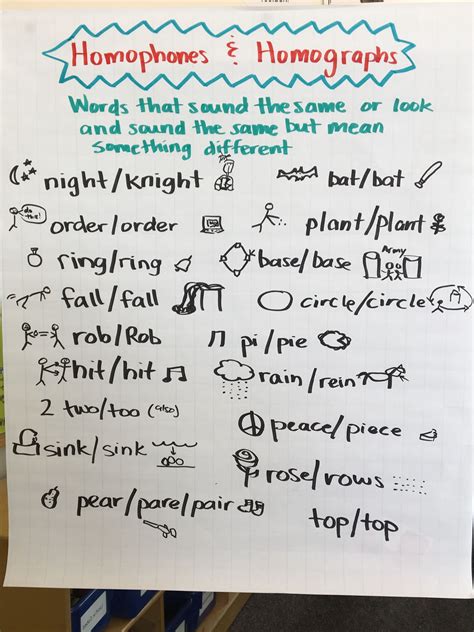 Homophones & Homographs
Words that sound the same or look
and sound the same but mean
something different
night/knight
bat/bat
do this!
order/order
plant/plant
ring/ring
base/base
Army
fall/fall
circle/circle
rob/Rob
π pi/pie
hit/hit
rain/rein
2 two/too (also)
peace/piece
sink/sink
rose/rows
pear/pare/pair
top/top